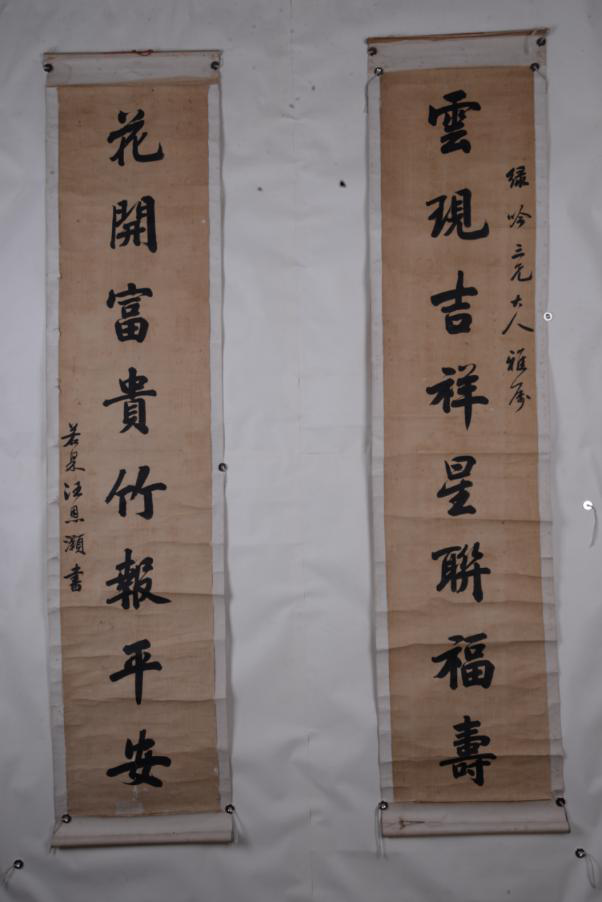 雲現吉祥星聯福壽
綠吟三兄大人雅屬
花開富貴竹報平安
若泉汪恩灝書